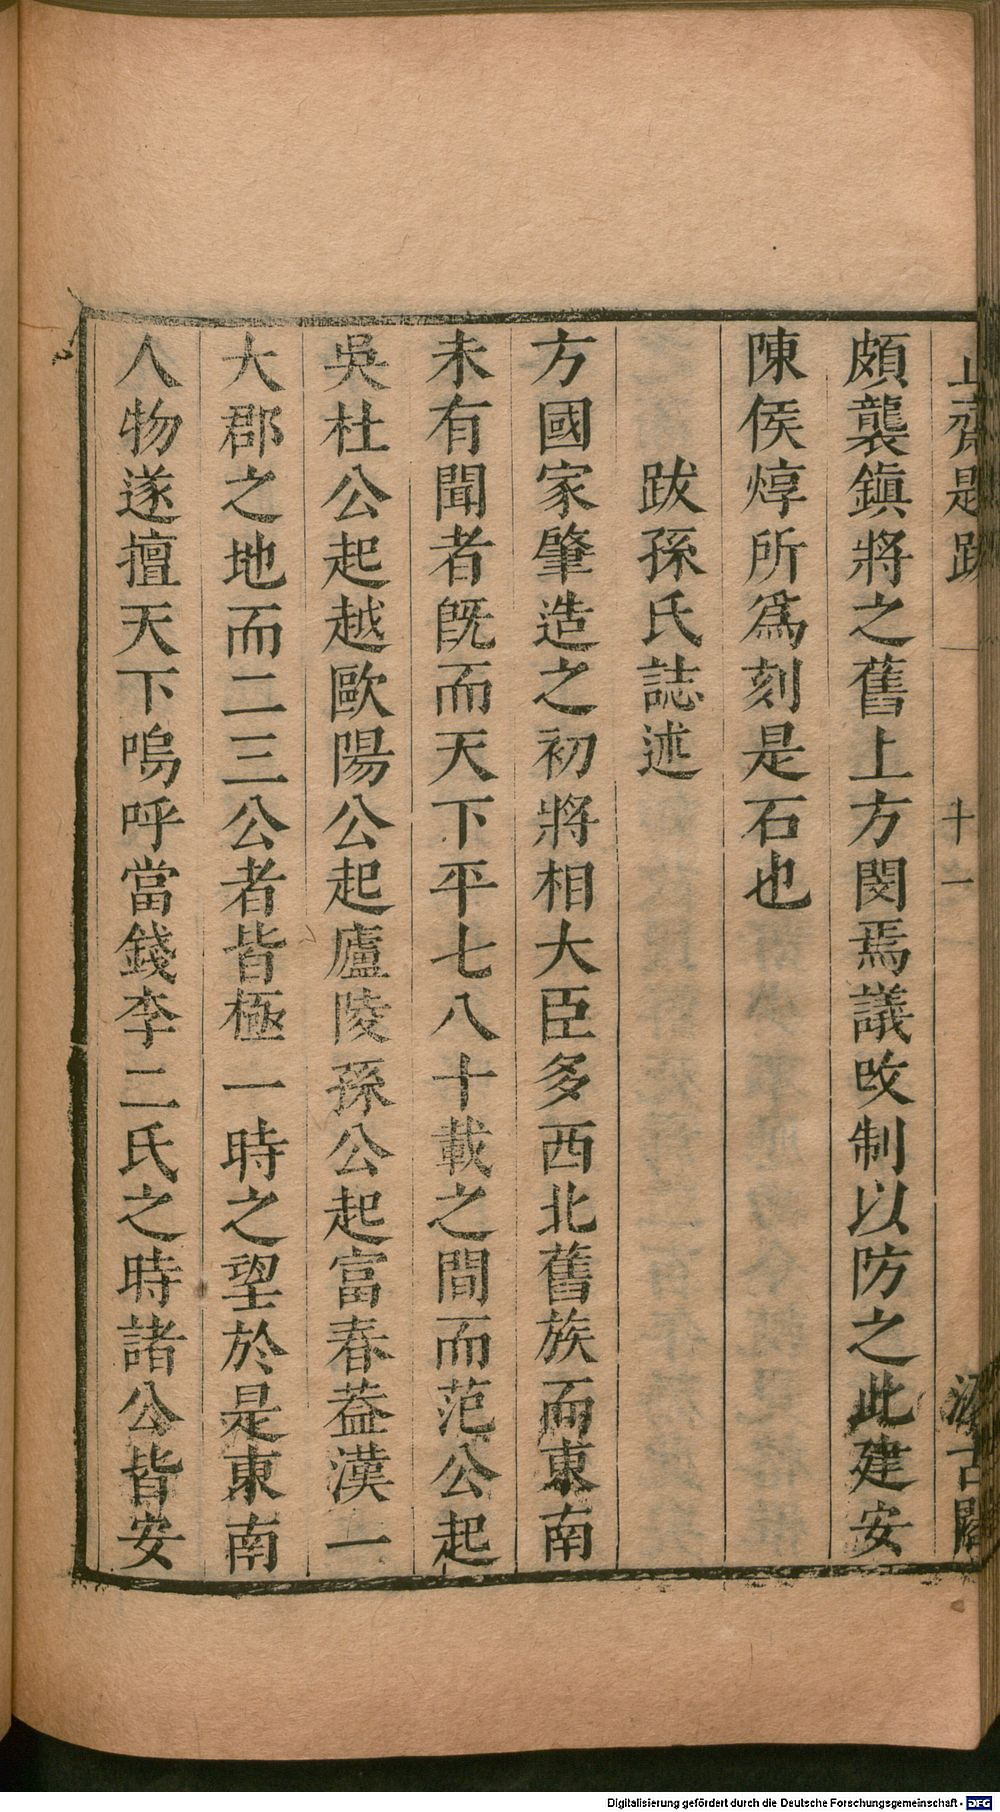 止齋題跋
十一
汲古閣
頗襲鎭將之舊上方閔焉議改制以防之此建安
陳侯焞所爲刻是石也
跋孫氏誌述
方國家肇造之初將相大臣多西北舊族而東南
未有聞者旣而天下平七八十載之間而范公起
吳杜公起越歐陽公起廬陵孫公起富春葢漢一
大郡之地而二三公者皆極一時之望於是東南
人物遂擅天下嗚呼當錢李二氏之時諸公皆安
Digitalisierung gefördert durch die Deutsche Forschungsgemeinschaft - DFG